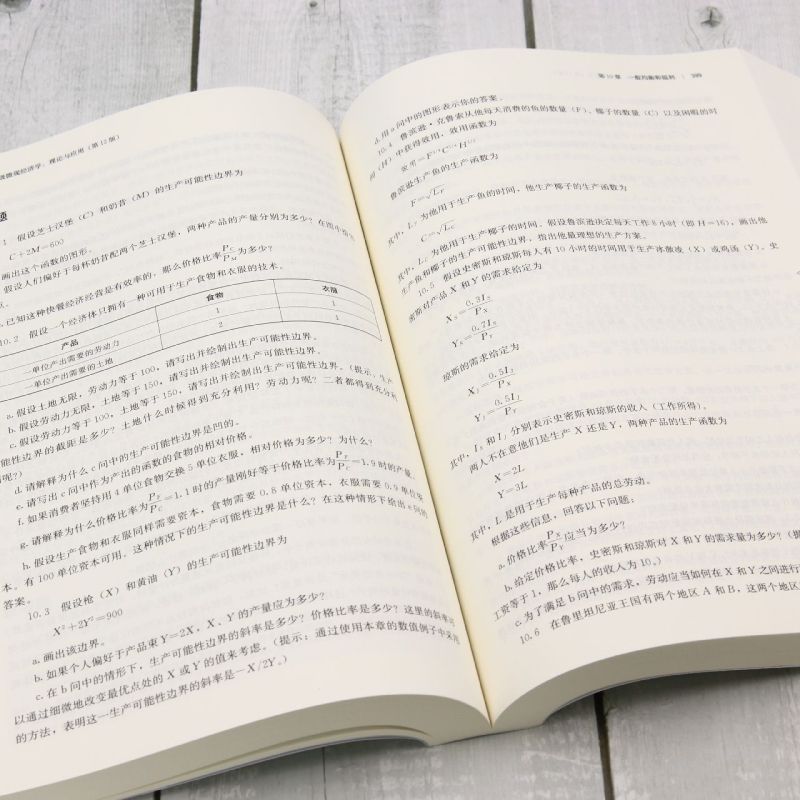 微观经济学：理论与应用（第12版）
题
1 假设芝士汉堡（C）和奶昔（M）的生产可能性边界为
C+2M=600
画出这个函数的图形。
假设人们偏好于每杯奶昔配两个芝士汉堡，两种产品的产量分别为多少？在图中标出
点。
已知这种快餐经济经营是有效率的，那么价格比率P_C/P_M为多少？
10.2 假设一个经济体只拥有一种可用于生产食物和衣服的技术。
产品 食物 衣服
一单位产出需要的劳动力 1 1
一单位产出需要的土地 2 1
a. 假设土地无限，劳动力等于100，请写出并绘制出生产可能性边界。
b. 假设劳动力无限，土地等于150，请写出并绘制出生产可能性边界。
c. 假设劳动力等于100，土地等于150，请写出并绘制出生产可能性边界。（提示，生产
能性边界的截距是多少？土地什么时候得到充分利用？劳动力呢？二者都得到充分利
呢？）
d. 请解释为什么c问中的生产可能性边界是凹的。
e. 请写出c问中作为产出的函数的食物的相对价格。
f. 如果消费者坚持用4单位食物交换5单位衣服，相对价格为多少？为什么？
g. 请解释为什么价格比率为P_F/P_C=1.1时的产量刚好等于价格比率为P_F/P_C=1.9时的产量。
h. 假设生产食物和衣服同样需要资本，食物需要0.8单位资本，衣服需要0.9单位资
本。有100单位资本可用。这种情况下的生产可能性边界是什么？在这种情形下给出e问的
答案。
10.3 假设枪（X）和黄油（Y）的生产可能性边界为
X²+2Y²=900
a. 画出该边界。
b. 如果个人偏好于产品束Y=2X，X、Y的产量应为多少？
c. 在b问中的情形下，生产可能性边界的斜率是多少？价格比率是多少？这里的斜率可
以通过细微地改变最优点处的X或Y的值来考虑。（提示：通过使用本章的数值例子中采用
的方法，表明这一生产可能性边界的斜率是−X/2Y。）
第10章 一般均衡和福利 | 309
d. 用a问中的图形表示你的答案。
10.4 鲁滨逊·克鲁索从他每天消费的鱼的数量（F）、椰子的数量（C）以及闲暇的时
间（H）中获得效用，效用函数为
鲁滨逊生产鱼的生产函数为
F=√L_F
其中，L_F为他用于生产鱼的时间，他生产椰子的生产函数为
C=√L_C
其中，L_C为他用于生产椰子的时间。假设鲁滨逊决定每天工作8小时（即H=16），画出他
生产鱼和椰子的生产可能性边界，指出他最理想的生产方案。
10.5 假设史密斯和琼斯每人有10小时的时间用于生产冰激凌（X）或鸡汤（Y）。史
密斯对产品X和Y的需求给定为
X_S=0.3I_S/P_X
Y_S=0.7I_S/P_Y
琼斯的需求给定为
X_J=0.5I_J/P_X
Y_J=0.5I_J/P_Y
其中，I_S和I_J分别表示史密斯和琼斯的收入（工作所得）。
两人不在意他们是生产X还是Y，两种产品的生产函数为
X=2L
Y=3L
其中，L是用于生产每种产品的总劳动。
根据这些信息，回答以下问题：
a. 价格比率P_X/P_Y应当为多少？
b. 给定价格比率，史密斯和琼斯对X和Y的需求量为多少？（提
工资等于1，那么每人的收入为10。）
c. 为了满足b问中的需求，劳动应当如何在X和Y之间进行
10.6 在鲁里坦尼亚王国有两个地区A和B，这两个地区